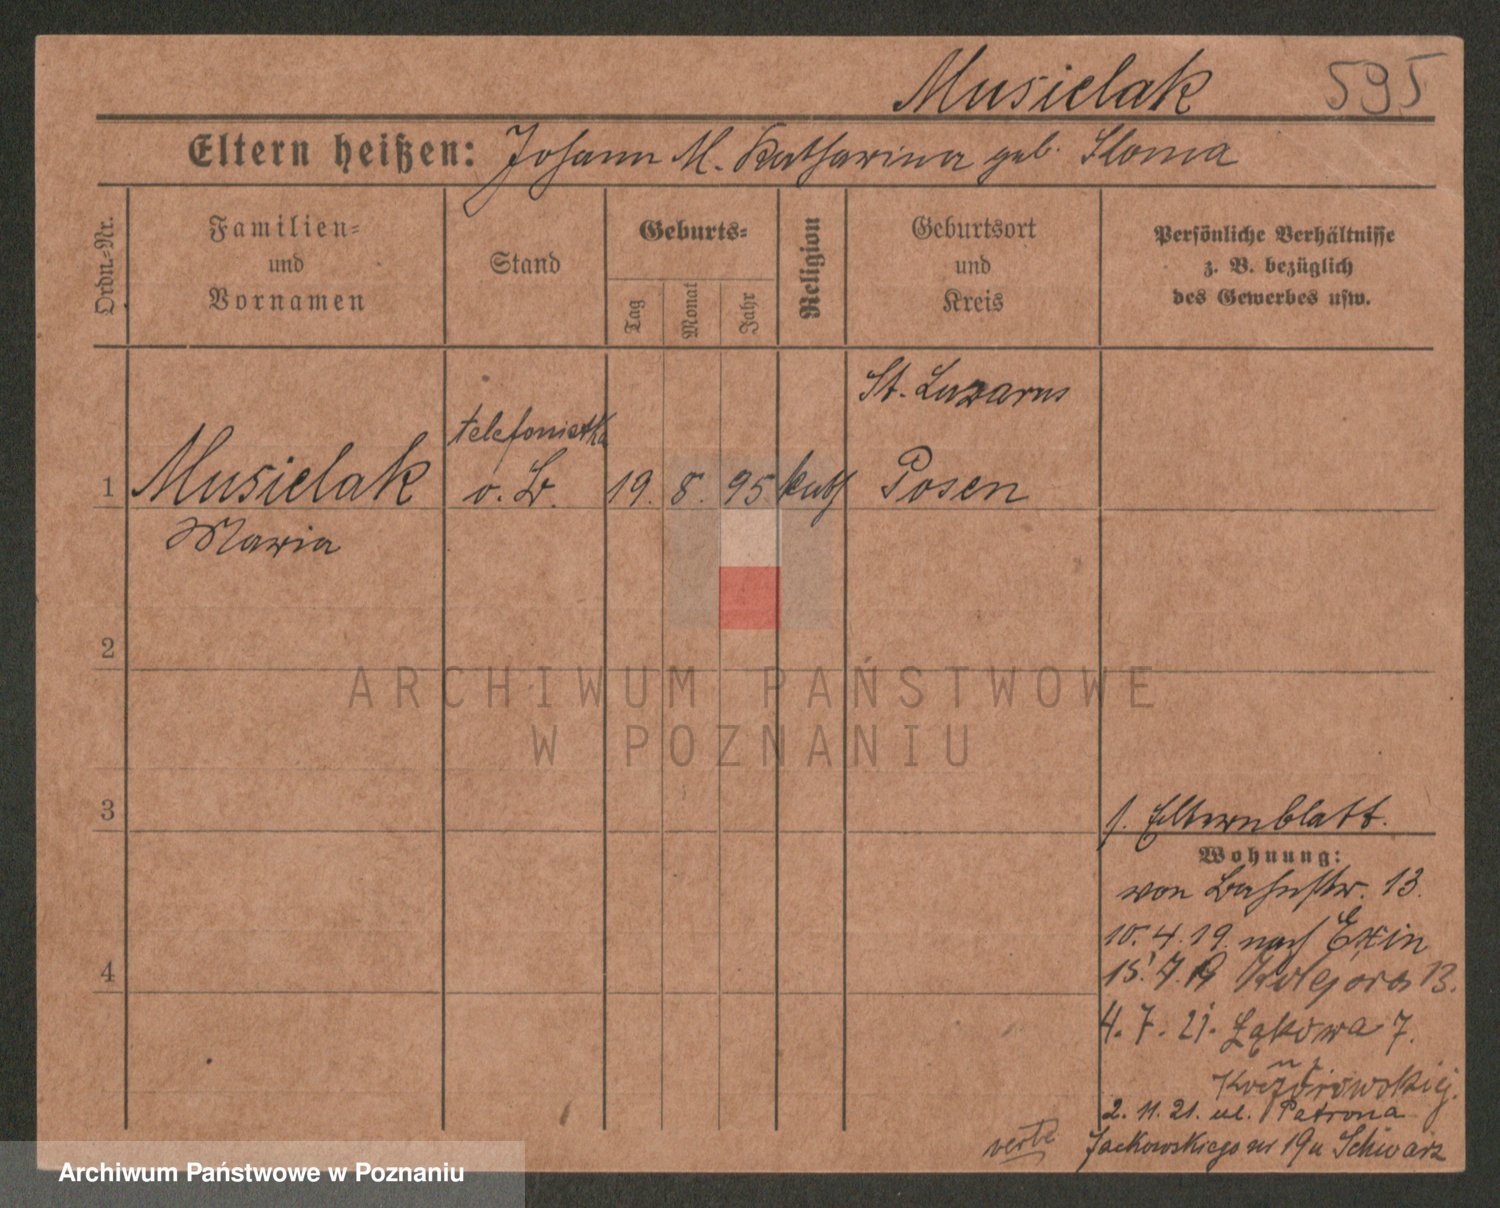 Musielak 595
Eltern heißen: Johann M. Katharina geb. Sloma
Ordn.=Nr.
Familien=
und
Vornamen
Stand
Geburts=
Tag
Monat
Jahr
Religion
Geburtsort
und
Kreis
Persönliche Verhältnisse
z. B. bezüglich
des Gewerbes usw.
St. Lazarus
telefonistka
1 Musielak o. B. 19. 8. 95 kath Posen
Maria
2
ARCHIWUM PAŃSTWOWE
W POZNANIU
3
s. Elternblatt.
Wohnung:
von Bahnstr. 13.
10. 4. 19. nach Exin
4
15. 7. 19 Kolejowa 13.
4. 7. 21. Łąkowa 7.
u
2. 11. 21. ul. Patrona
Jackowskiego nr 19 u Schwarz
Archiwum Państwowe w Poznaniu